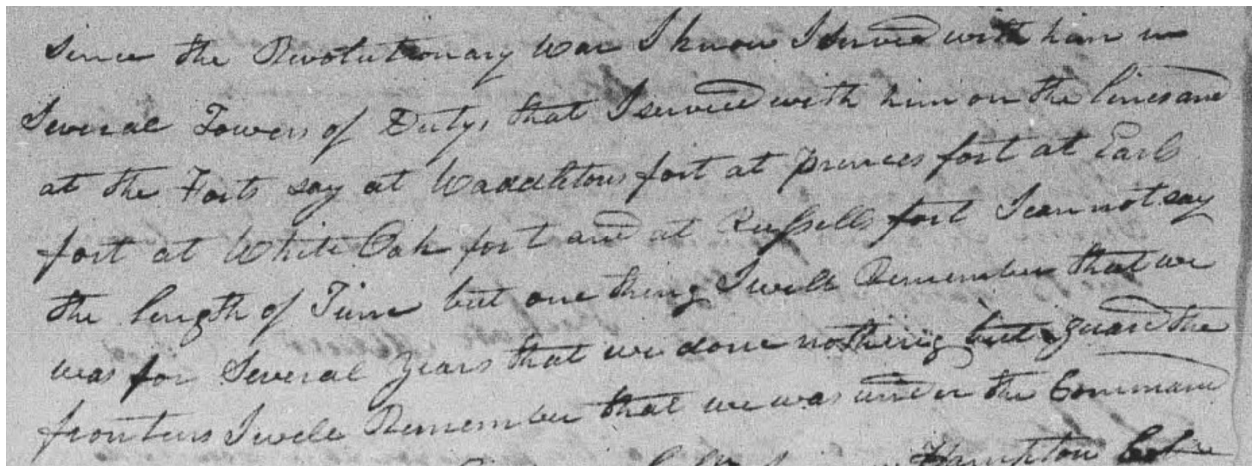 Since the Revolutionary War I know I served with him in
Several Towers of Duty, that I served with him on the lines and
at the Forts say at Waddletons fort at princes fort at Earls
fort at White Oak fort and at Russells fort I can not say
the length of Time but one thing I well Remember that we
was for Several years that we done nothing but guard the
fronters I well Remember that we was under the Command
Hampton